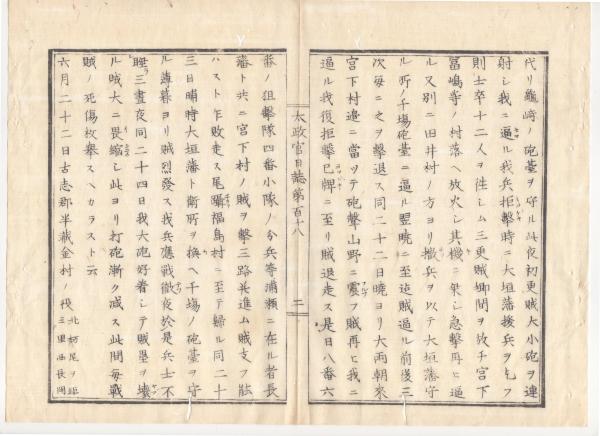 代リ龜崎ノ砲臺ヲ守ル此夜初更賊大小砲ヲ連
射シ我ニ逼ル我兵拒擊時ニ大垣藩援兵ヲ乞フ
則士卒十二人ヲ徃シム三更賊鄉間ヲ放チ宮下
冨嶋等ノ村落ヘ放火シ其機ニ乘シ急擊再ヒ逼
ル又別ニ田井村ノ方ヨリ撒兵ヲ以テ大垣藩守
ル所ノ十場砲臺ニ逼ル翌曉ニ至迄賊逼ル前後三
次每ニ之ヲ擊退ス同二十二日曉ヨリ大雨朝來
宮下村邊ニ當ツテ砲擊山野ニ震フ賊再ヒ我ニ
逼ル我復拒擊巳牌ニ至リ賊退走ス是日八番六
太政官日誌第百十八
二
番ノ狙擊隊四番小隊ノ分兵等浦瀨ニ在ル者長
藩ト共ニ宮下村ノ賊ヲ擊三路並進ム賊支フ能
ハスト乍敗走ス尾躡福島村ニ至テ歸ル同二十
三日晡時大垣藩ト衞所ヲ換ヘ十場ノ砲臺ヲ守
ル薄暮ヨリ賊烈發ス我兵應戰徹夜於是兵士不
睡三晝夜同二十四日我大砲好着シテ賊壘ヲ壞
ル賊大ニ畏縮シ此ヨリ打砲漸ク减ス此間每戰
賊ノ死傷枚擧スヘカラスト云
六月二十二日古志郡半藏金村ノ役
北栃尾ヲ距
三里西長岡